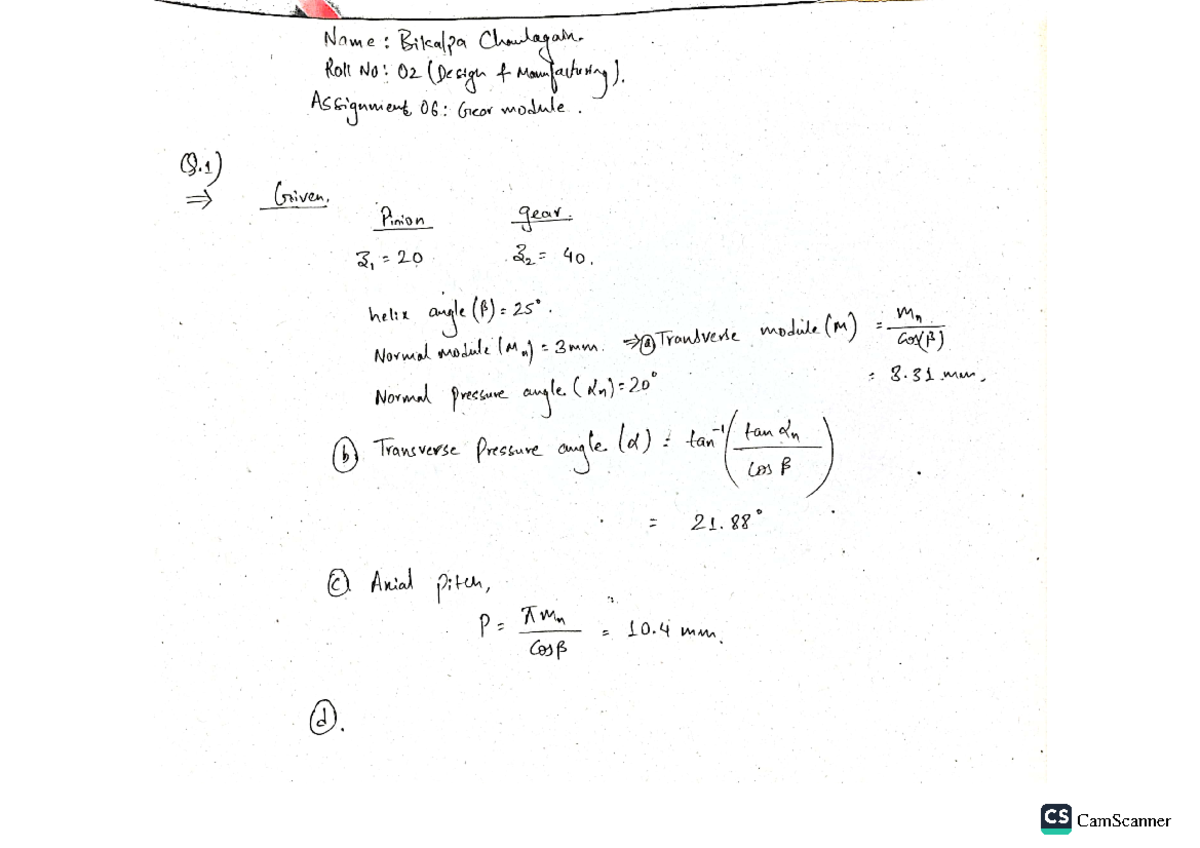 Name: Bikalpa Chaulagain.
Roll No: 02 (Design & Manufacturing).
Assignment 06: Gear module.
Q.1)
⇒ Given,
Pinion gear.
z₁ = 20 z₂ = 40.
helix angle (β) = 25°.
Normal module (Mₙ) = 3mm. ⇒ ⓐ Transverse module (M) = Mₙ / Cos(β)
= 3.31 mm.
Normal pressure angle (αₙ) = 20°
ⓑ Transverse Pressure angle (α) = tan⁻¹ (tan αₙ / Cos β)
= 21.88°
ⓒ Axial pitch,
P = πMₙ / Cosβ = 10.4 mm.
ⓓ.
CS CamScanner